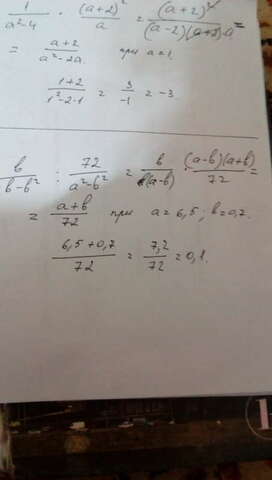 1/(a²-4) · (a+2)²/a = (a+2)²/((a-2)(a+2)·a) =
= (a+2)/(a²-2a) при a=1.
(1+2)/(1²-2·1) = 3/-1 = -3
b/(b-b²) : 72/(a²-b²) = b/(b(a-b)) · ((a-b)(a+b))/72 =
= (a+b)/72 при a=6,5; b=0,7.
(6,5+0,7)/72 = 7,2/72 = 0,1.